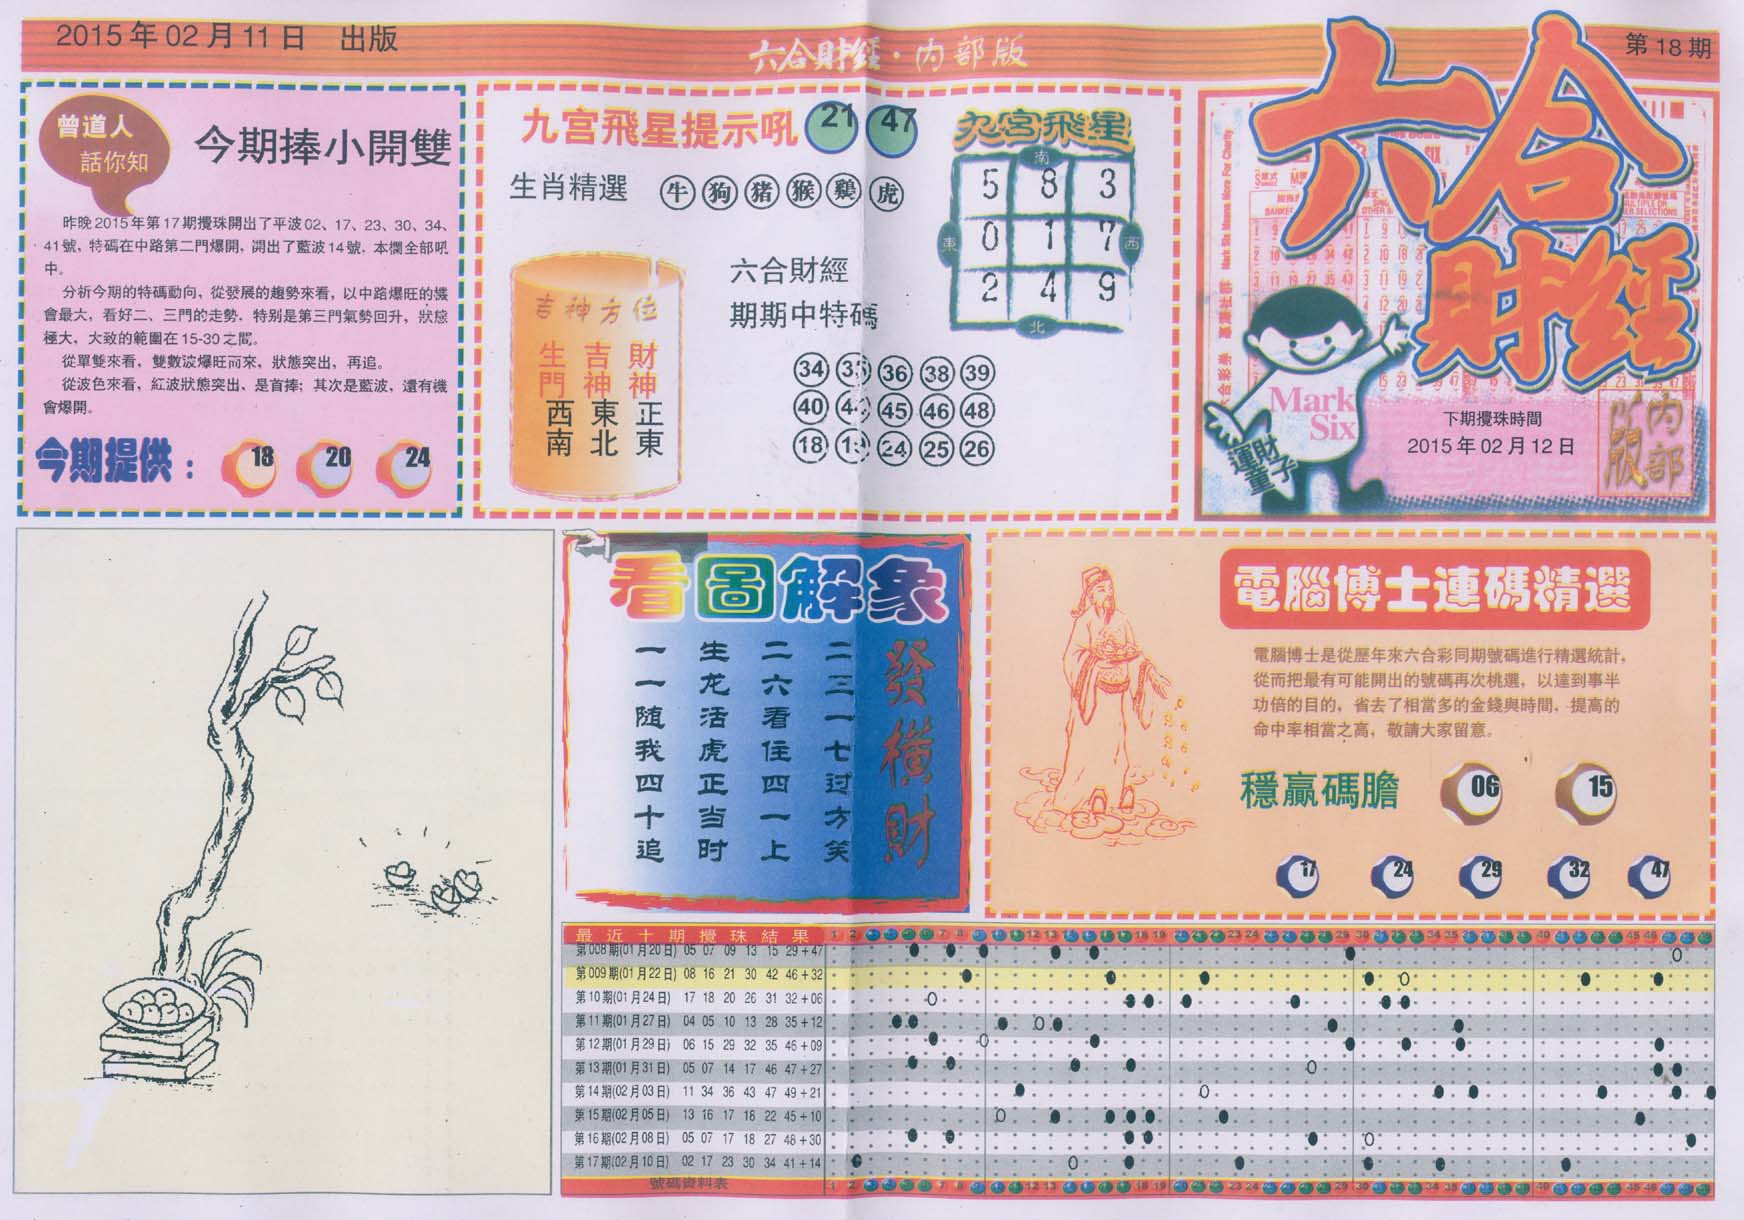 2015年02月11日 出版
六合財經·内部版
第18期
曾道人
話你知
今期捧小開雙
昨晚2015年第17期攪珠開出了平波02、17、23、30、34、
41號，特碼在中路第二門爆開，開出了藍波14號．本欄全部吼
中。
分析今期的特碼動向，從發展的趨勢來看，以中路爆旺的機
會最大，看好二、三門的走勢．特别是第三門氣勢回升，狀態
極大，大致的範圍在15-30之間。
從單雙來看，雙數波爆旺而來，狀態突出，再追。
從波色來看，紅波狀態突出、是首捧；其次是藍波，還有機
會爆開。
今期提供：
18 20 24
九宫飛星提示吼 21 47
生肖精選 牛 狗 猪 猴 鷄 虎
吉神方位
生門 吉神 財神
西南 東北 正東
六合財經
期期中特碼
34 35 36 38 39
40 44 45 46 48
18 19 24 25 26
九宫飛星
南
5 8 3
東 0 1 7 西
2 4 9
北
六合
財經
Mark
Six
運財
童子
下期攪珠時間
2015年02月12日
内部
版
看圖解象
發横財
二三一七过方笑
二六看住四一上
生龙活虎正当时
一一随我四十追
電腦博士連碼精選
電腦博士是從歷年來六合彩同期號碼進行精選統計，
從而把最有可能開出的號碼再次桃選，以達到事半
功倍的目的，省去了相當多的金錢與時間，提高的
命中率相當之高，敬請大家留意。
穩贏碼膽 06 15
17 24 29 32 47
最近十期攪珠結果
第008期(01月20日) 05 07 09 13 15 29+47
第009期(01月22日) 08 16 21 30 42 46+32
第10期(01月24日) 17 18 20 26 31 32+06
第11期(01月27日) 04 05 10 13 28 35+12
第12期(01月29日) 06 15 29 32 35 46+09
第13期(01月31日) 05 07 14 17 46 47+27
第14期(02月03日) 11 34 36 43 47 49+21
第15期(02月05日) 13 16 17 18 22 45+10
第16期(02月08日) 05 07 17 18 27 48+30
第17期(02月10日) 02 17 23 30 34 41+14
號碼資料表